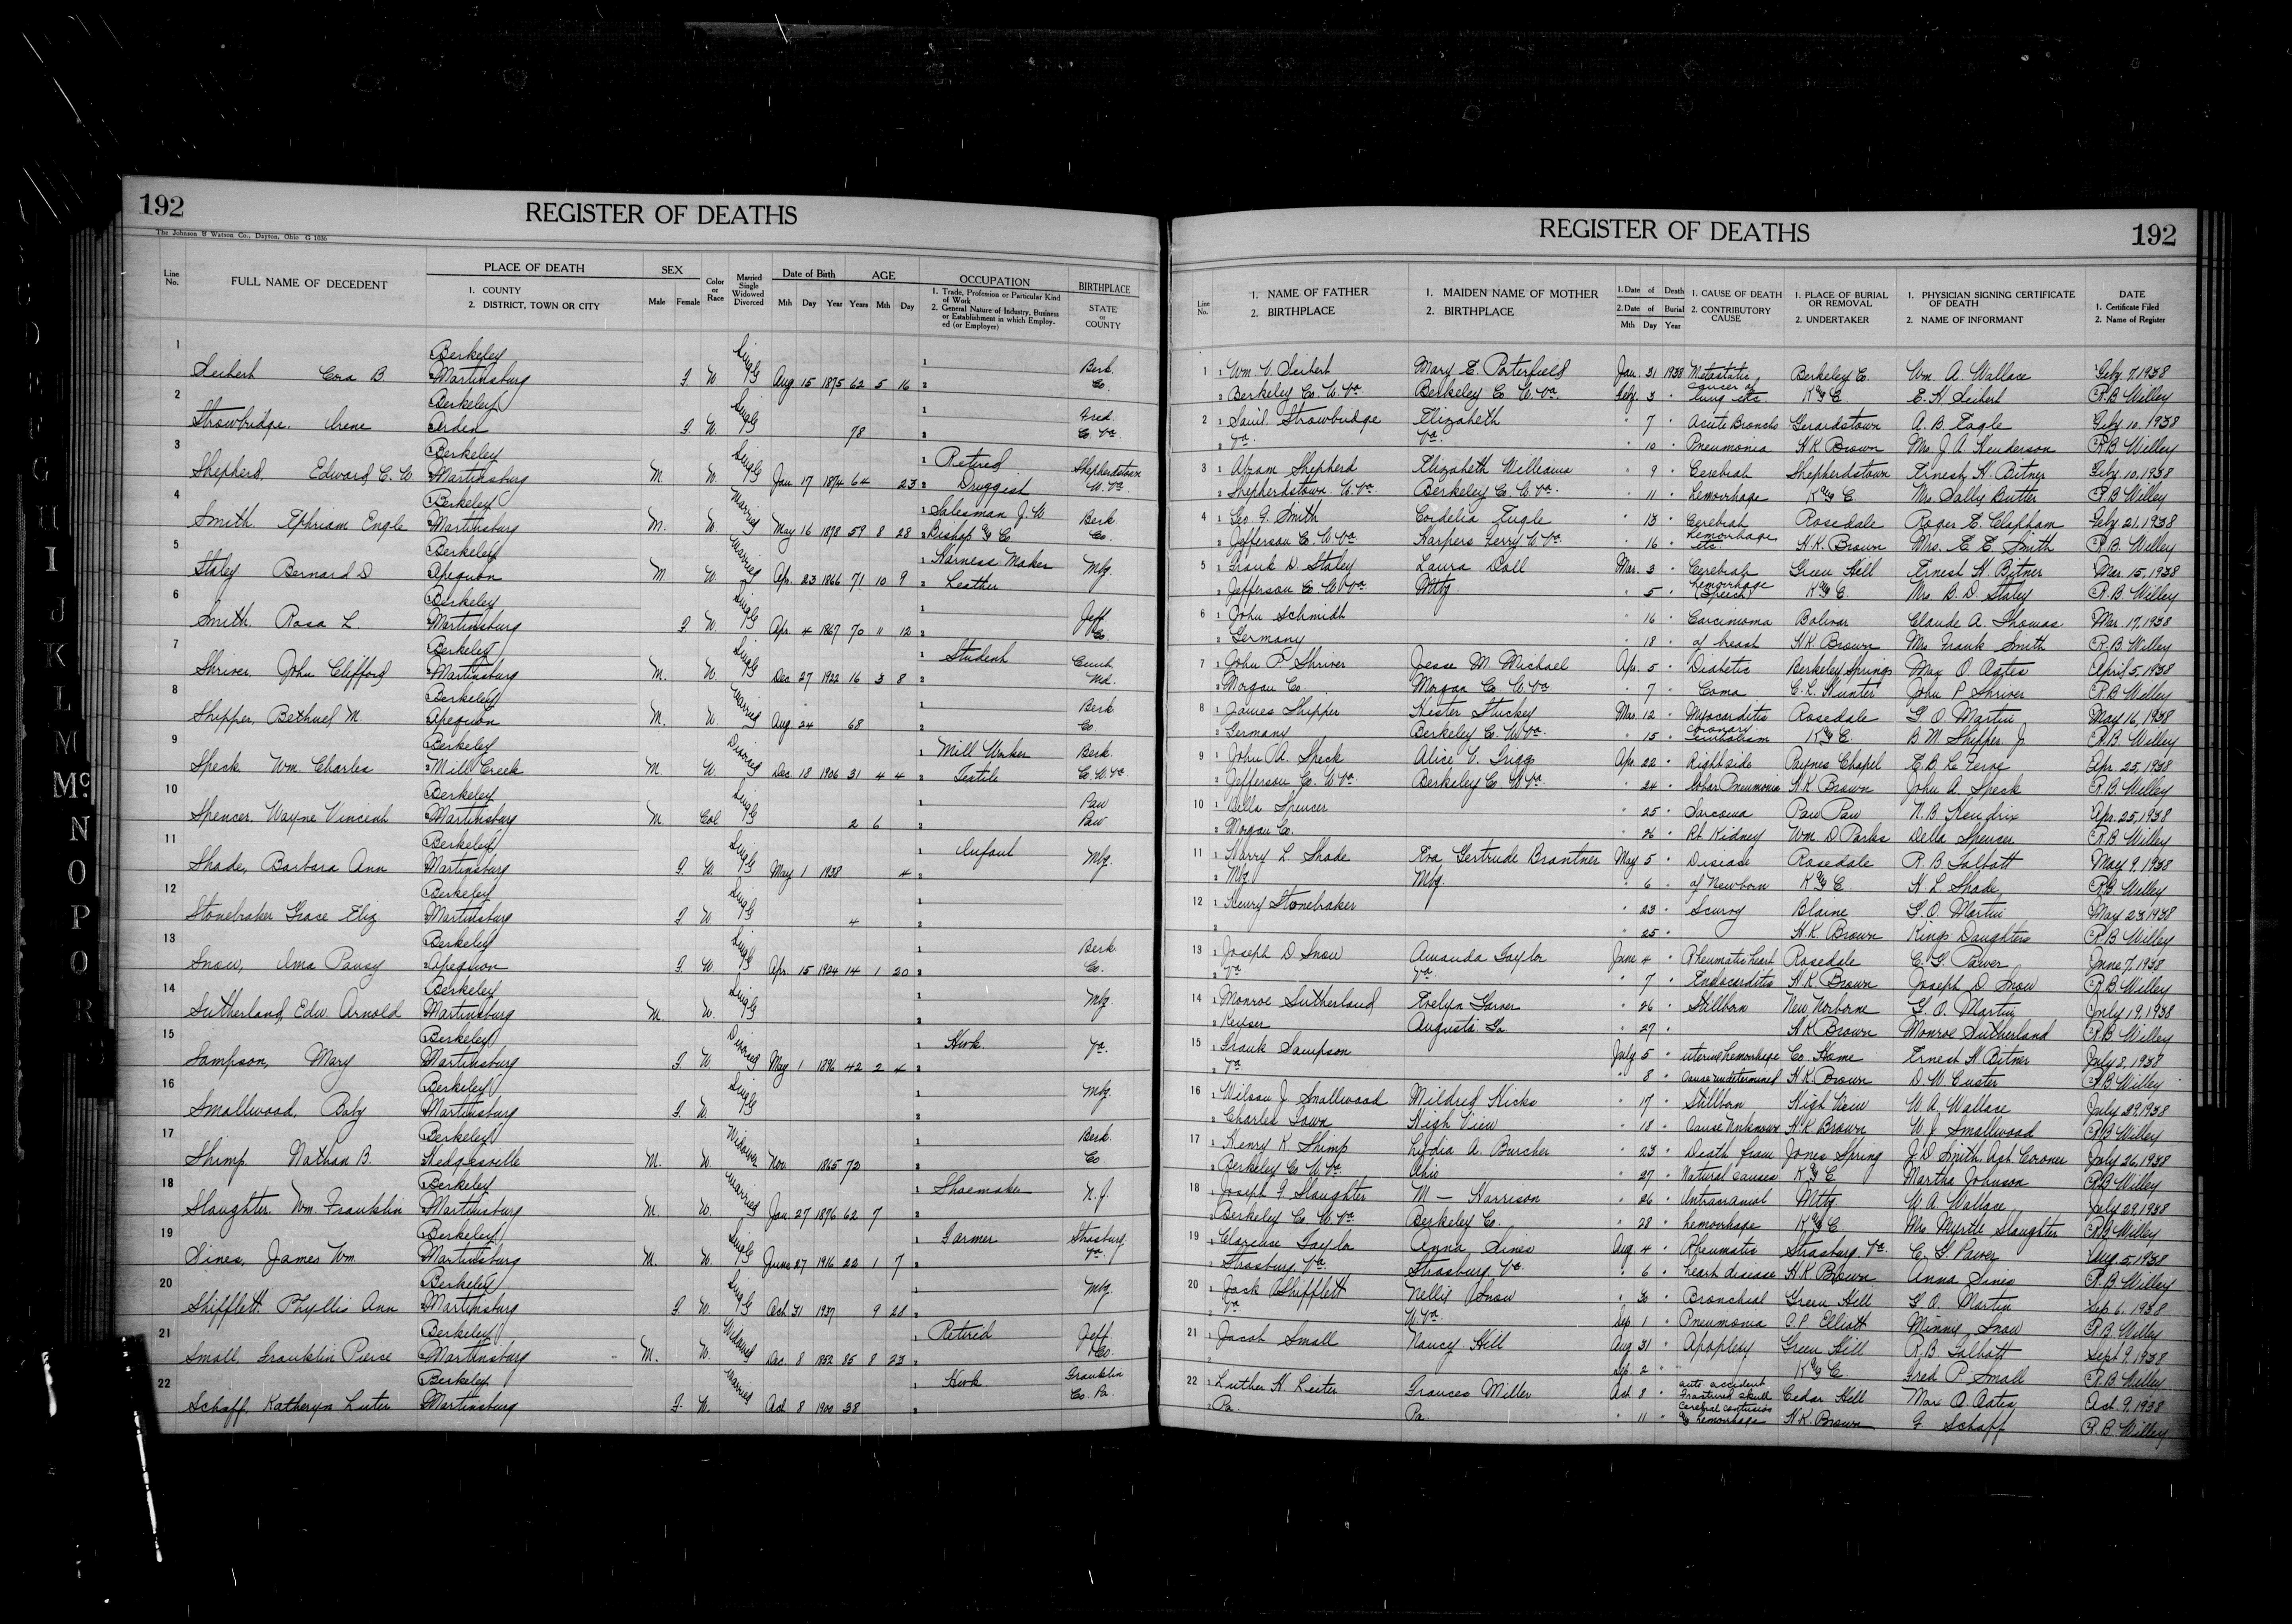 192
REGISTER OF DEATHS
The Johnson & Watson Co., Dayton, Ohio G 1036
Line No. FULL NAME OF DECEDENT PLACE OF DEATH 1. COUNTY 2. DISTRICT, TOWN OR CITY SEX Male Female Color or Race Married Single Widowed Divorced Date of Birth Mth Day Year AGE Years Mth Day OCCUPATION 1. Trade, Profession or Particular Kind of Work 2. General Nature of Industry, Business or Establishment in which Employed (or Employer) BIRTHPLACE STATE or COUNTY
1 Berkeley
Seibert Cora B. 2 Martinsburg F W Single Aug 15 1875 62 5 16 Berk. Co.
2 Berkeley
Strowbridge, Irene Arden F W Single 78 Fred. Co. Va.
3 Berkeley Retired
Shepherd, Edward C. W 2 Martinsburg M. W. Single Jan 17 1874 64 23 Druggist Shepherdstown W. Va.
4 Berkeley Salesman J. W.
Smith. Ephriam Engle 2 Martinsburg M. W. Married May 16 1878 59 8 28 Bishop & Co Berk Co.
5 Berkeley Harness Maker
Staley Bernard D 2 Opequon M W. Married Apr. 23 1866 71 10 9 Leather Mbg.
6 Berkeley
Smith. Rosa L. 2 Martinsburg F W. Single Apr. 4 1867 70 11 12 Jeff Co
7 Berkeley Student
Shriver, John Clifford 2 Martinsburg M. W. Single Dec 27 1922 16 3 8 Cumb Md.
8 Berkeley
Shipper, Bethuel M. 2 Opequon M. W. Married Aug 24 68 Berk Co.
9 Berkeley Mill Worker
Speck Wm. Charles 2 Mill Creek M W. Divorced Dec. 18 1906 31 4 4 Textile Berk. Co W. Va.
10 Berkeley
Spencer, Wayne Vincent 2 Martinsburg M. Col Single 2 6 Paw Paw
11 Berkeley Infant
Shade, Barbara Ann 2 Martinsburg F. W. Single May 1 1938 4 Mbg.
12 Berkeley
Stonebraker Grace Eliz 2 Martinsburg F W Single 4
13 Berkeley
Snow, Ima Pansy 2 Opequon F. W Single Apr. 15 1924 14 1 20 Berk Co.
14 Berkeley
Sutherland, Edw. Arnold 2 Martinsburg M. W. Single Mbg.
15 Berkeley Hwk.
Sampson, Mary 2 Martinsburg F W Divorced May 1 1896 42 2 4 Va.
16 Berkeley
Smallwood, Baby 2 Martinsburg F. W. Single Mbg.
17 Berkeley
Shimp. Nathan B. 2 Hedgesville M. W. Widower Nov. 1865 72 Berk. Co
18 Berkeley Shoemaker
Slaughter. Wm. Franklin 2 Martinsburg M. W. Married Jan. 27 1876 62 7 N. J.
19 Berkeley Farmer
Sines, James Wm. 2 Martinsburg M. W. Single June 27 1916 22 1 7 Strasburg Va.
20 Berkeley
Shifflett Phyllis Ann 2 Martinsburg F. W. Single Oct 31 1937 9 28 Mbg.
21 Berkeley Retired
Small, Franklin Pierce 2 Martinsburg M. W. Widowed Dec. 8 1852 85 8 23 Jeff. Co.
22 Berkeley Hwk
Schaff. Katheryn Luter 2 Martinsburg F. W. Married Oct 8 1900 38 Franklin Co. Pa.
REGISTER OF DEATHS
192
Line No. 1. NAME OF FATHER 2. BIRTHPLACE 1. MAIDEN NAME OF MOTHER 2. BIRTHPLACE 1. Date of Death 2. Date of Burial Mth Day Year 1. CAUSE OF DEATH 2. CONTRIBUTORY CAUSE 1. PLACE OF BURIAL OR REMOVAL 2. UNDERTAKER 1. PHYSICIAN SIGNING CERTIFICATE OF DEATH 2. NAME OF INFORMANT DATE 1. Certificate Filed 2. Name of Register
1 1 Wm. V. Seibert Mary E. Porterfield Jan. 31 1938 Metastatic Berkeley Co. Wm. A. Wallace Feby. 7, 1938
2 Berkeley Co. W. Va Berkeley Co W. Va. Feby. 3 " cancer of lung etc K & C. E. H. Seibert R. B. Willey
2 1 Saml. Strowbridge Elizabeth " 7 " Acute Broncho Gerardstown A. B. Eagle Feby. 10, 1938
2 Va. Va. " 10 " Pneumonia H. K. Brown Mrs J. A. Henderson R. B. Willey
3 1 Abram Shepherd Elizabeth Williams " 9 " Cerebral Shepherdstown Ernest H. Bitner Feby. 10, 1938
2 Shepherdstown. W. Va. Berkeley Co W. Va. " 11 " Hemorrhage K & C Mrs. Sally Butler R. B Willey
4 1 Geo. F. Smith Cordelia Engle " 13 " Cerebral Rosedale Roger E. Clapham Feby. 21, 1938
2 Jefferson Co. W. Va Harpers Ferry W. Va. " 16 " hemorrhage etc H. K. Brown Mrs. E. E. Smith R. B. Willey
5 1 Frank D. Staley Laura Doll Mar. 3 " Cerebral Green Hill Ernest H. Bitner Mar. 15, 1938
2 Jefferson Co W. Va. Mtbg. " 5 " hemorrhage (Speech) K & C. Mrs. B. D. Staley R. B Willey
6 1 John Schmidt " 16 " Carcinoma Bolivar Claude A. Thomas Mar. 17, 1938
2 Germany " 18 " of breast H. K. Brown Mrs Frank Smith R. B. Willey
7 1 John P. Shriver Jesse M. Michael Apr. 5 " Diabetic Berkeley Springs Max O. Oates April 5, 1938
2 Morgan Co. Morgan Co. W. Va. " 7 " Coma C. L. Hunter John P. Shriver R. B Willey
8 1 James Shipper Hester Stuckey Mar. 12 " Myocarditis Rosedale G. O. Martin May 16, 1938
2 Germany Berkeley Co. W. Va. " 15 " Coronary K & C. B. M. Shipper Jr R. B. Willey
9 1 John A. Speck Alice V. Trigg Apr. 22 " Right side Paynes Chapel E. B. Le Fevre Apr. 25, 1938
2 Jefferson Co. W. Va Berkeley Co W. Va. " 24 " lobar Pneumonia H. K. Brown John A. Speck R. B. Willey
10 1 Della Spencer " 25 " Sarcoma Paw Paw N. B. Hendrix Apr. 25, 1938
2 Morgan Co. " 26 " Rt. Kidney Wm. D. Parks Della Spencer R. B Willey
11 1 Harry L. Shade Eva Gertrude Brantner May 5 " Disease Rosedale R. B. Talbott May 9, 1938
2 Mbg Mbg. " 6 " of Newborn K & C. H. L. Shade R. B. Willey
12 1 Henry Stonebraker " 23 " Scurvy Blaine G. O. Martin May 23, 1938
2 " 25 " H. K. Brown Kings Daughters R. B Willey
13 1 Joseph D. Snow Amanda Taylor June 4 " Rheumatic heart Rosedale C. G. Power June 7, 1938
2 Va Va " 7 " Endocarditis H. K. Brown Joseph D. Snow R. B. Willey
14 1 Monroe Sutherland Evelyn Garver " 26 " Stillborn New Norborne G. O. Martin July 19, 1938
2 Keyser Augusta Ga. " 27 " H. K Brown Monroe Sutherland R. B Willey
15 1 Frank Sampson July 5 " uterine hemorrhage Co. Home Ernest H. Bitner July 8, 1938
2 Va " 8 " Cause undetermined H. K. Brown D. W. Custer R. B Willey
16 1 Wilson J. Smallwood Mildred Hicks " 17 " Stillborn High View W. A. Wallace July 29, 1938
2 Charles Town High View " 18 " Cause Unknown H. K. Brown W. J. Smallwood R. B Willey
17 1 Henry K. Shimp Lydia A. Burcher " 23 " Death from Jones Spring J. D. Smith, Act. Coroner July 26, 1938
2 Berkeley Co. W. Va. Ohio " 27 " Natural causes K & C Martha Johnson R. B. Willey
18 1 Joseph F. Slaughter M — Harrison " 26 " Intracranial Mtbg. W. A. Wallace July 29, 1938
2 Berkeley Co. W. Va. Berkeley Co. " 28 " hemorrhage K & C. Mrs Myrtle Slaughter R. B Willey
19 1 Clarence Taylor Anna Sines Aug. 4 " Rheumatic Strasburg. Va. C. G. Power Aug. 5, 1938
2 Strasburg Va. Strasburg Va. " 6 " heart disease H. K. Brown Anna Sines R. B. Willey
20 1 Jack Shifflett Nellie Snow " 30 " Bronchial Green Hill G. O. Martin Sep 6, 1938
2 Va W. Va. Sep. 1 " Pneumonia C. P. Elliott Minnie Snow R. B. Willey
21 1 Jacob Small Nancy Hill Aug 31 " Apoplexy Green Hill R. B. Talbott Sept 9, 1938
2 Sep. 2 " K & C Fred P Small R. B Willey
22 1 Luther H. Luter Frances Miller Oct 8 " auto accident Fractured skull Cedar Hill Max O. Oates Oct. 9, 1938
2 Pa. Pa. " 11 " Cerebral contusion & hemorrhage H. K. Brown F. Schaff R. B. Willey
H
I
J
K
L
M
Mc
N
O
P
R